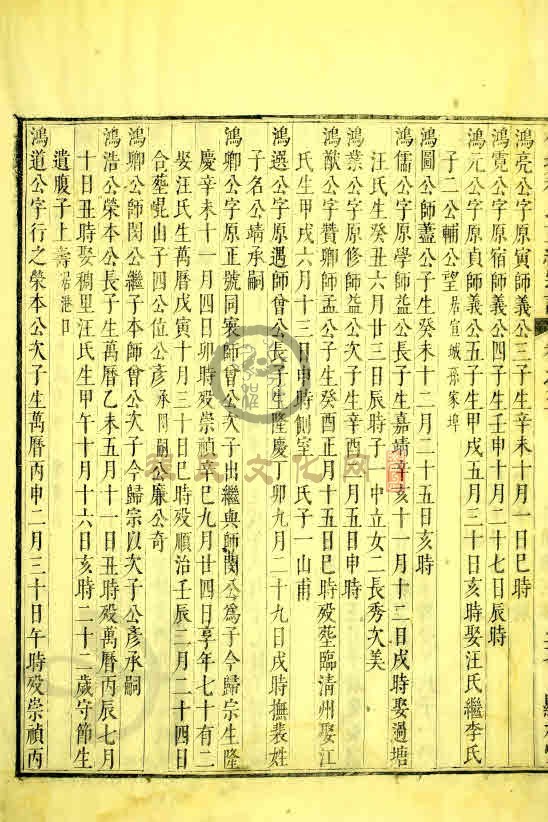 鴻亮公字原寅師義公三子生辛未十月一日巳時
鴻霓公字原宿師義公四子生壬申十月二十七日辰時
鴻元公字原貞師義公五子生甲戌五月三十日亥時娶汪氏繼李氏
子二公輔公望居宣城孫家埠
鴻圖公師藎公子生癸未十二月二十五日亥時
鴻儒公字原學師益公長子生嘉靖辛亥十一月十二日戌時娶過塘
汪氏生癸丑六月廿三日辰時子 中立女二長秀次美
鴻業公字原修師益公次子生辛酉 月五日申時
鴻猷公字贊卿師孟公子生癸酉正月十五日巳時歿塟臨清州娶江
氏生甲戌六月十三日申時側室 氏子一山甫
鴻選公字原遇師曾公長子生隆慶丁卯九月二十九日戌時撫裴姓
子名公靖承嗣
鴻卿公字原正號同寰師曾公次子出繼與師閔公為子今歸宗生隆
慶辛未十一月四日卯時歿崇禎辛巳九月廿四日享年七十有二
娶汪氏生萬曆戊寅十月三十日巳時歿順治壬辰三月二十四日
合塟崐山子四公位公彥承閔嗣公廉公奇
鴻卿公師閔公繼子本師曾公次子今歸宗以次子公彥承嗣
鴻浩公榮本公長子生萬曆乙未五月十一日丑時歿萬曆丙辰七月
十日丑時娶稠里汪氏生甲午十月十六日亥時二十二歲守節生
遺腹子上壽居港口
鴻道公字行之榮本公次子生萬曆丙申二月三十日午時歿崇禎丙